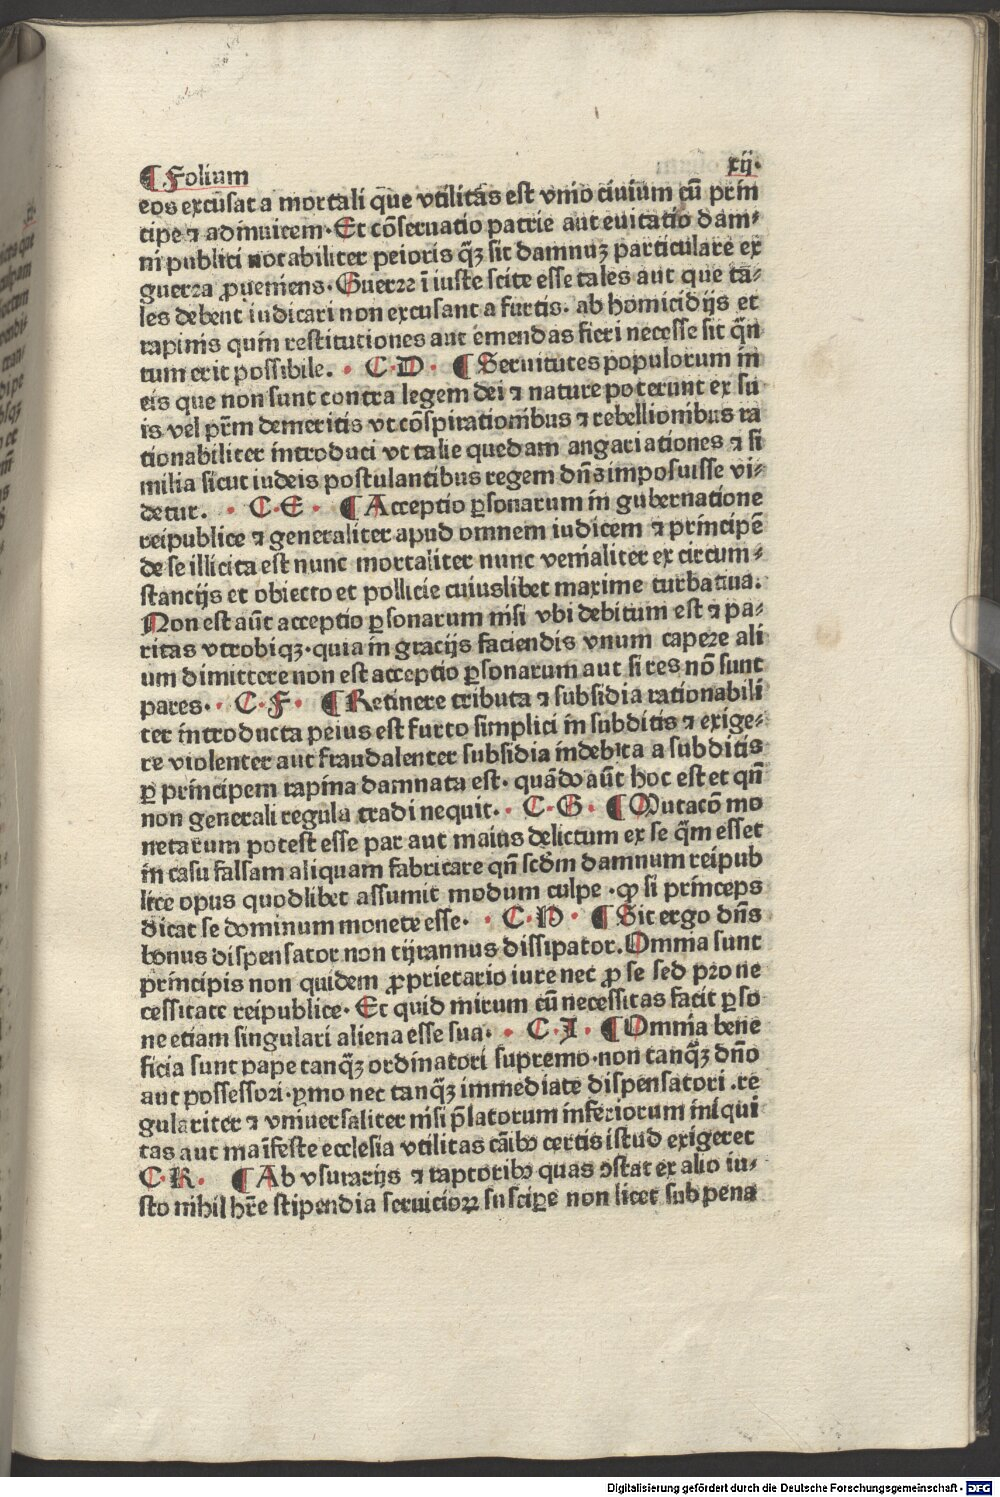 ¶ Folium xij.
eos excusat a mortali que vtilitas est vnio ciuium cū prin
cipe ⁊ adinuicem. Et cōseruatio patrie aut euitatio dam⸗
ni publici notabiliter peioris qꝫ sit damnuꝫ particulare ex
guerra ꝓueniens. Guerrꝛ iīuste scite esse tales aut que ta⸗
les debent iudicari non excusant a furtis. ab homicidijs et
rapinis quin restitutiones aut emendas fieri necesse sit q̄n
tum erit possibile. · C·D· ¶ Seruitutes populorum in
eis que non sunt contra legem dei ⁊ nature poterunt ex su
is vel pr̄m demeritis vt cōspirationibus ⁊ rebellionibus ra
tionabiliter introduci vt talie quedam angariationes ⁊ si
milia sicut iudeis postulantibus regem dn̄s imposuisse vi⸗
detur. · C·E· ¶ Acceptio ꝑsonarum in gubernatione
reipublice ⁊ generaliter apud omnem iudicem ⁊ principē
de se illicita est nunc mortaliter nunc venialiter ex circum⸗
stancijs et obiecto et pollicie cuiuslibet maxime turbatiua.
Non est aūt acceptio ꝑsonarum nisi vbi debitum est ⁊ pa⸗
ritas vtrobiqꝫ. quia in gracijs faciendis vnum capere ali
um dimittere non est acceptio ꝑsonarum aut si res nō sunt
pares. · C·F· ¶ Retinere tributa ⁊ subsidia rationabili
ter introducta peius est furto simplici in subditis ⁊ exige⸗
re violenter aut fraudalenter subsidia indebita a subditis
ꝑ principem rapina damnata est. quādo aūt hoc est et qn̄
non generali regula tradi nequit. · C·G· ¶ Mutacō mo
netarum potest esse par aut maius delictum ex se q̄m esset
in casu falsam aliquam fabricare qn̄ scd̄m damnum reipub
lice opus quodlibet assumit modum culpe. ꝙ si princeps
dicat se dominum monete esse. · C·H· ¶ Sit ergo dn̄s
bonus dispensator non tijrannus dissipator. Omnia sunt
principis non quidem ꝓprietario iure nec ꝓ se sed pro ne
cessitate reipublice. Et quid mirum cū necessitas facit ꝑso
ne etiam singulari aliena esse sua. · C·I· ¶ Omnia bene
ficia sunt pape tanq̄ꝫ ordinatori supremo. non tanq̄ꝫ dn̄o
aut possessori. ꝑmo nec tanq̄ꝫ immediate dispensatori. re
gulariter ⁊ vniuersaliter nisi p̄latorum inferiorum iniqui
tas aut maīfeste ecclesia vtilitas cāibꝰ certis istud exigeret
C·K· ¶ Ab vsurarijs ⁊ raptoribꝰ quas ꝯstat ex alio iu⸗
sto nihil hr̄e stipendia seruicioꝝ suscipe non licet sub pena